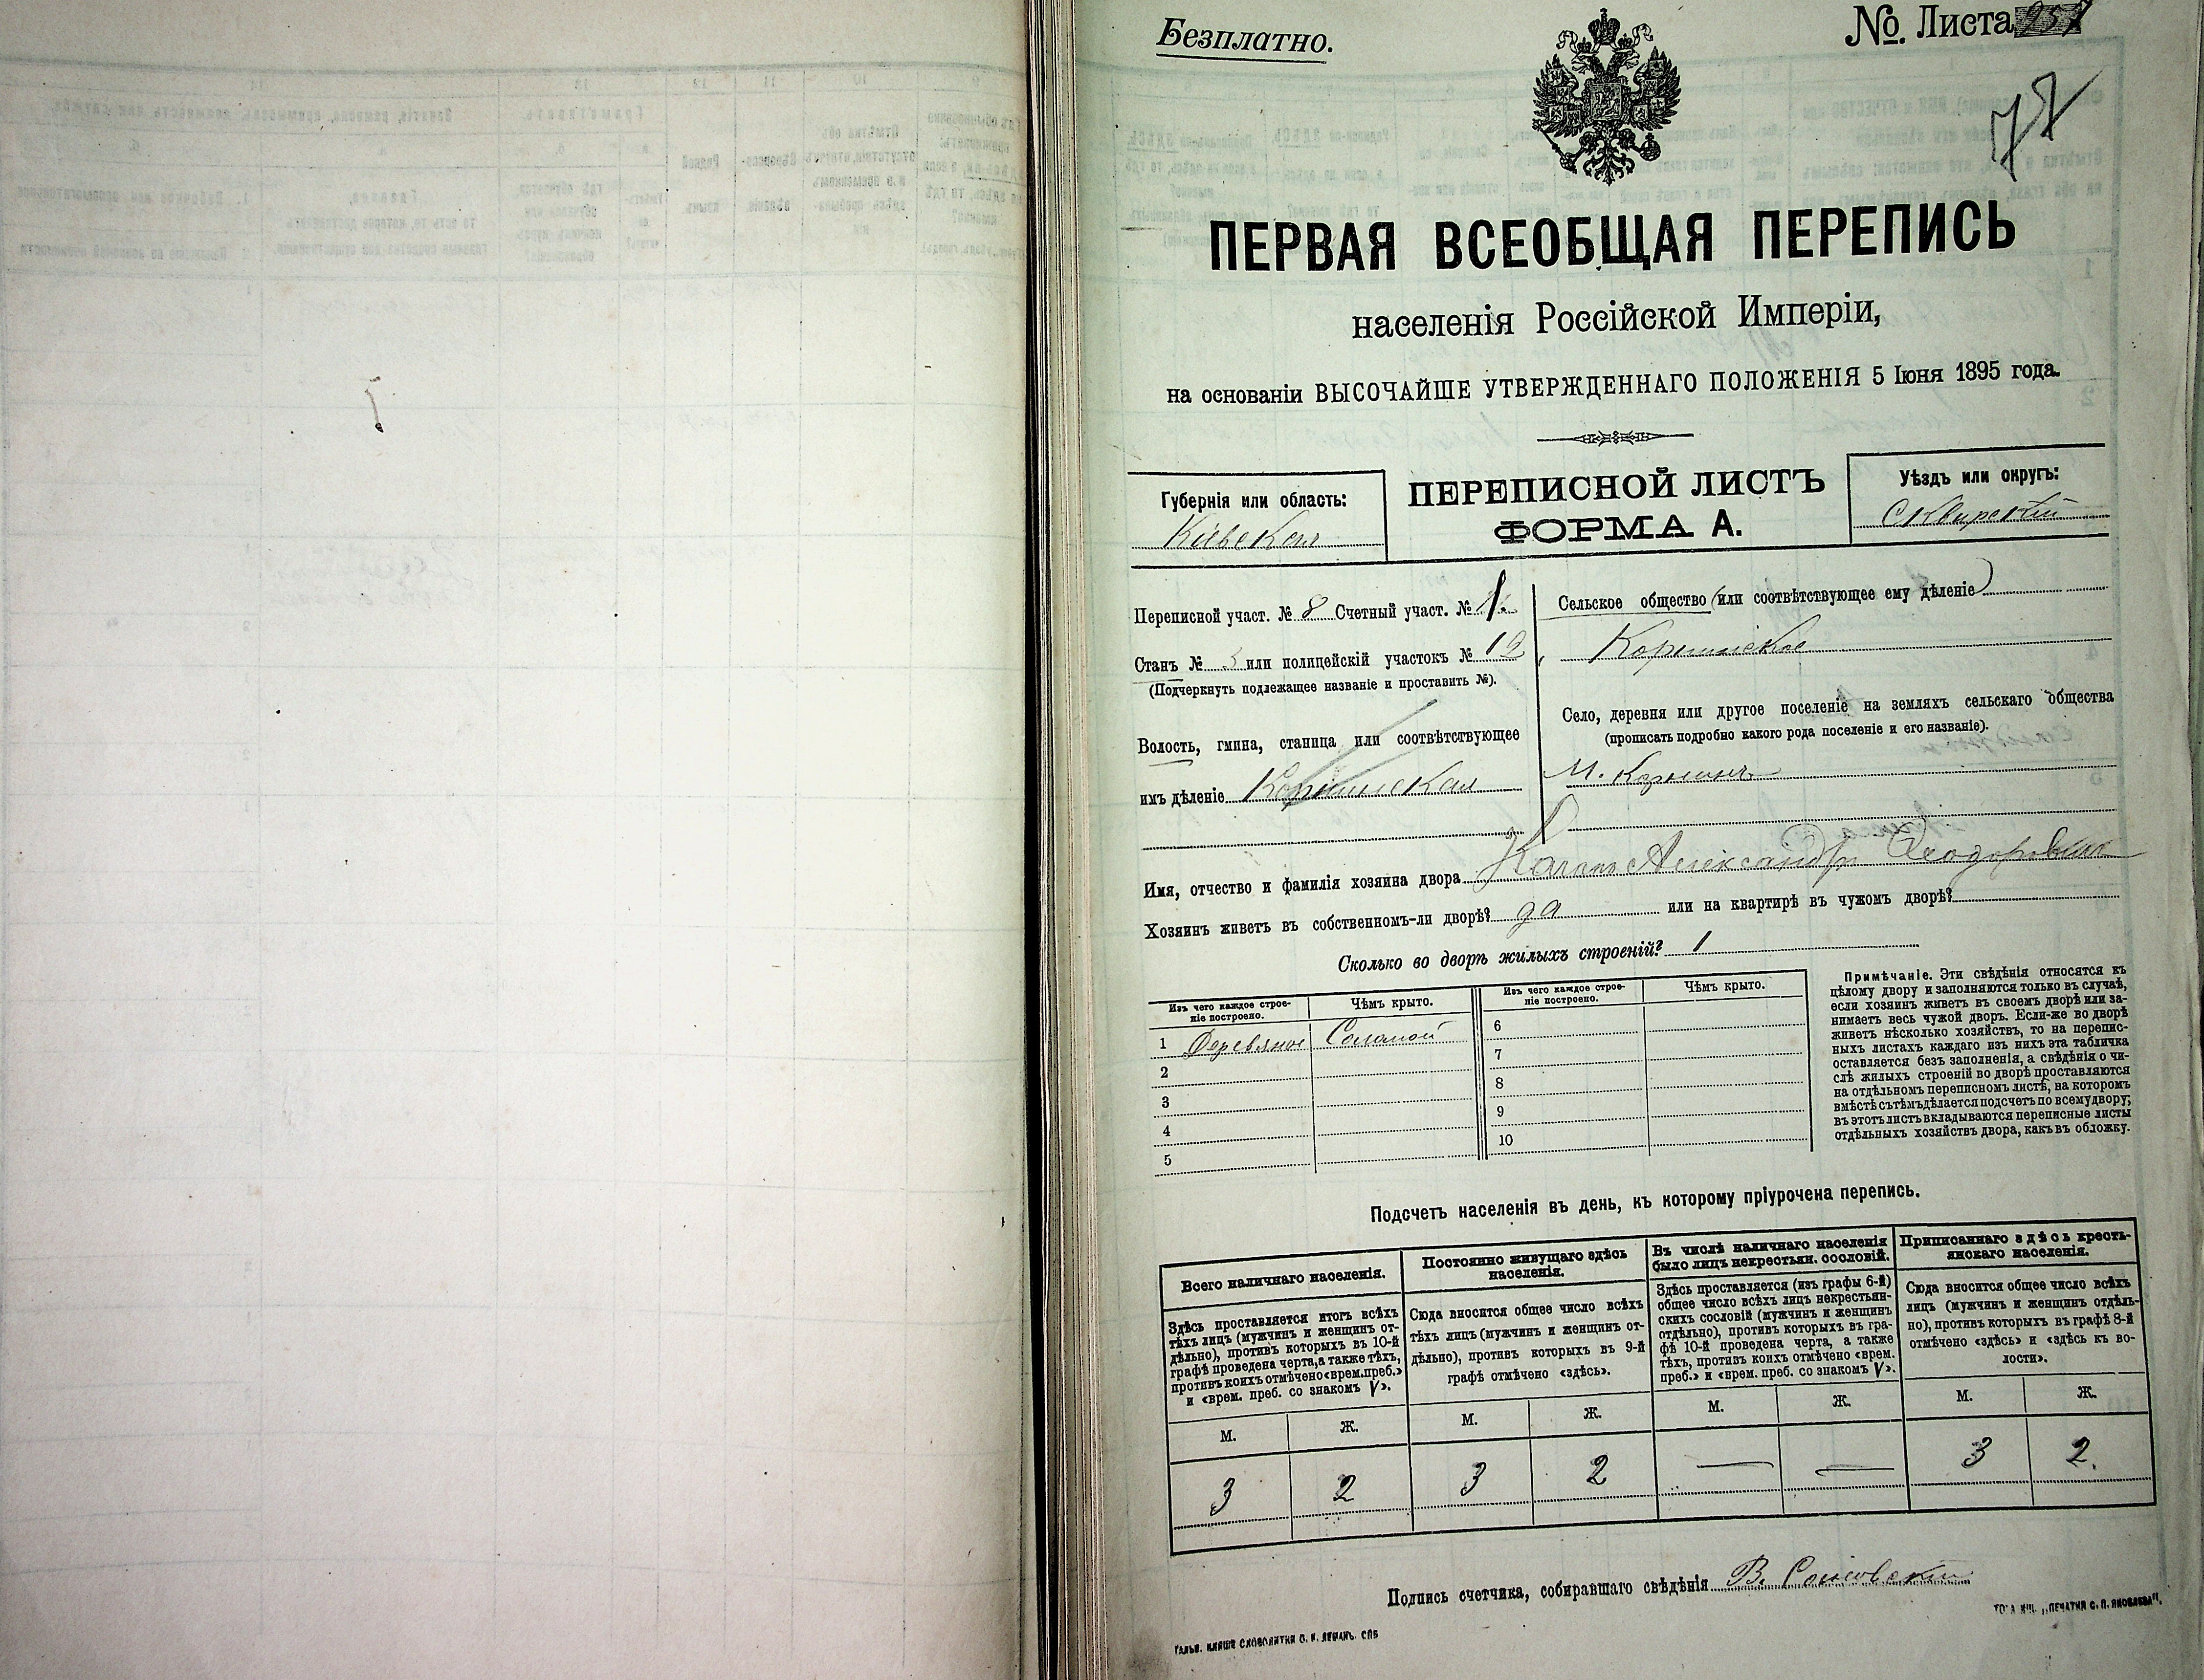 Безплатно.
No. Листа
77
ПЕРВАЯ ВСЕОБЩАЯ ПЕРЕПИСЬ
населенія Россійской Имперіи,
на основаніи ВЫСОЧАЙШЕ УТВЕРЖДЕННАГО ПОЛОЖЕНІЯ 5 Іюня 1895 года.
Губернія или область:
Кіевская
ПЕРЕПИСНОЙ ЛИСТЪ
ФОРМА А.
Уѣздъ или округъ:
Сквирскій
Переписной участ. № 8 Счетный участ. №
Станъ № 3 или полицейскій участокъ № 12
(Подчеркнуть подлежащее названіе и проставить №).
Волость, гмина, станица или соотвѣтствующее
имъ дѣленіе
Сельское общество (или соотвѣтствующее ему дѣленіе)
Село, деревня или другое поселеніе на земляхъ сельскаго общества
(прописать подробно какого рода поселеніе и его названіе).
М. Корнинъ
Имя, отчество и фамилія хозяина двора Александръ Ѳеодоровичъ
Хозяинъ живетъ въ собственномъ-ли дворѣ? да или на квартирѣ въ чужомъ дворѣ?
Сколько во дворѣ жилыхъ строеній? 1
Изъ чего каждое строе-
ніе построено.
Чѣмъ крыто.
Изъ чего каждое строе-
ніе построено.
Чѣмъ крыто.
1 Деревяное Соломой
2
3
4
5
6
7
8
9
10
Примѣчаніе. Эти свѣдѣнія относятся къ
цѣлому двору и заполняются только въ случаѣ,
если хозяинъ живетъ въ своемъ дворѣ или за-
нимаетъ весь чужой дворъ. Если-же во дворѣ
живетъ нѣсколько хозяйствъ, то на перепис-
ныхъ листахъ каждаго изъ нихъ эта табличка
оставляется безъ заполненія, а свѣдѣнія о чи-
слѣ жилыхъ строеній во дворѣ проставляются
на отдѣльномъ переписномъ листѣ, на которомъ
вмѣстѣ съ тѣмъ дѣлается подсчетъ по всему двору;
въ этотъ листъ вкладываются переписные листы
отдѣльныхъ хозяйствъ двора, какъ въ обложку.
Подсчетъ населенія въ день, къ которому пріурочена перепись.
Всего наличнаго населенія.
Здѣсь проставляется итогъ всѣхъ
тѣхъ лицъ (мужчинъ и женщинъ от-
дѣльно), противъ которыхъ въ 10-й
графѣ проведена черта, а также тѣхъ,
противъ коихъ отмѣчено «врем. преб.»
и «врем. преб. со знакомъ V».
М. Ж.
3 2
Постоянно живущаго здѣсь
населенія.
Сюда вносится общее число всѣхъ
тѣхъ лицъ (мужчинъ и женщинъ от-
дѣльно), противъ которыхъ въ 9-й
графѣ отмѣчено «здѣсь».
М. Ж.
3 2
Въ числѣ наличнаго населенія
было лицъ некрестьян. сословій.
Здѣсь проставляется (изъ графы 6-й)
общее число всѣхъ лицъ некрестьян-
скихъ сословій (мужчинъ и женщинъ
отдѣльно), противъ которыхъ въ гра-
фѣ 10-й проведена черта, а также
тѣхъ, противъ коихъ отмѣчено «врем.
преб.» и «врем. преб. со знакомъ V».
М. Ж.
— —
Приписаннаго здѣсь кресть-
янскаго населенія.
Сюда вносится общее число всѣхъ
лицъ (мужчинъ и женщинъ отдѣль-
но), противъ которыхъ въ графѣ 8-й
отмѣчено «здѣсь» и «здѣсь къ во-
лости».
М. Ж.
3 2.
Подпись счетчика, собиравшаго свѣдѣнія В.